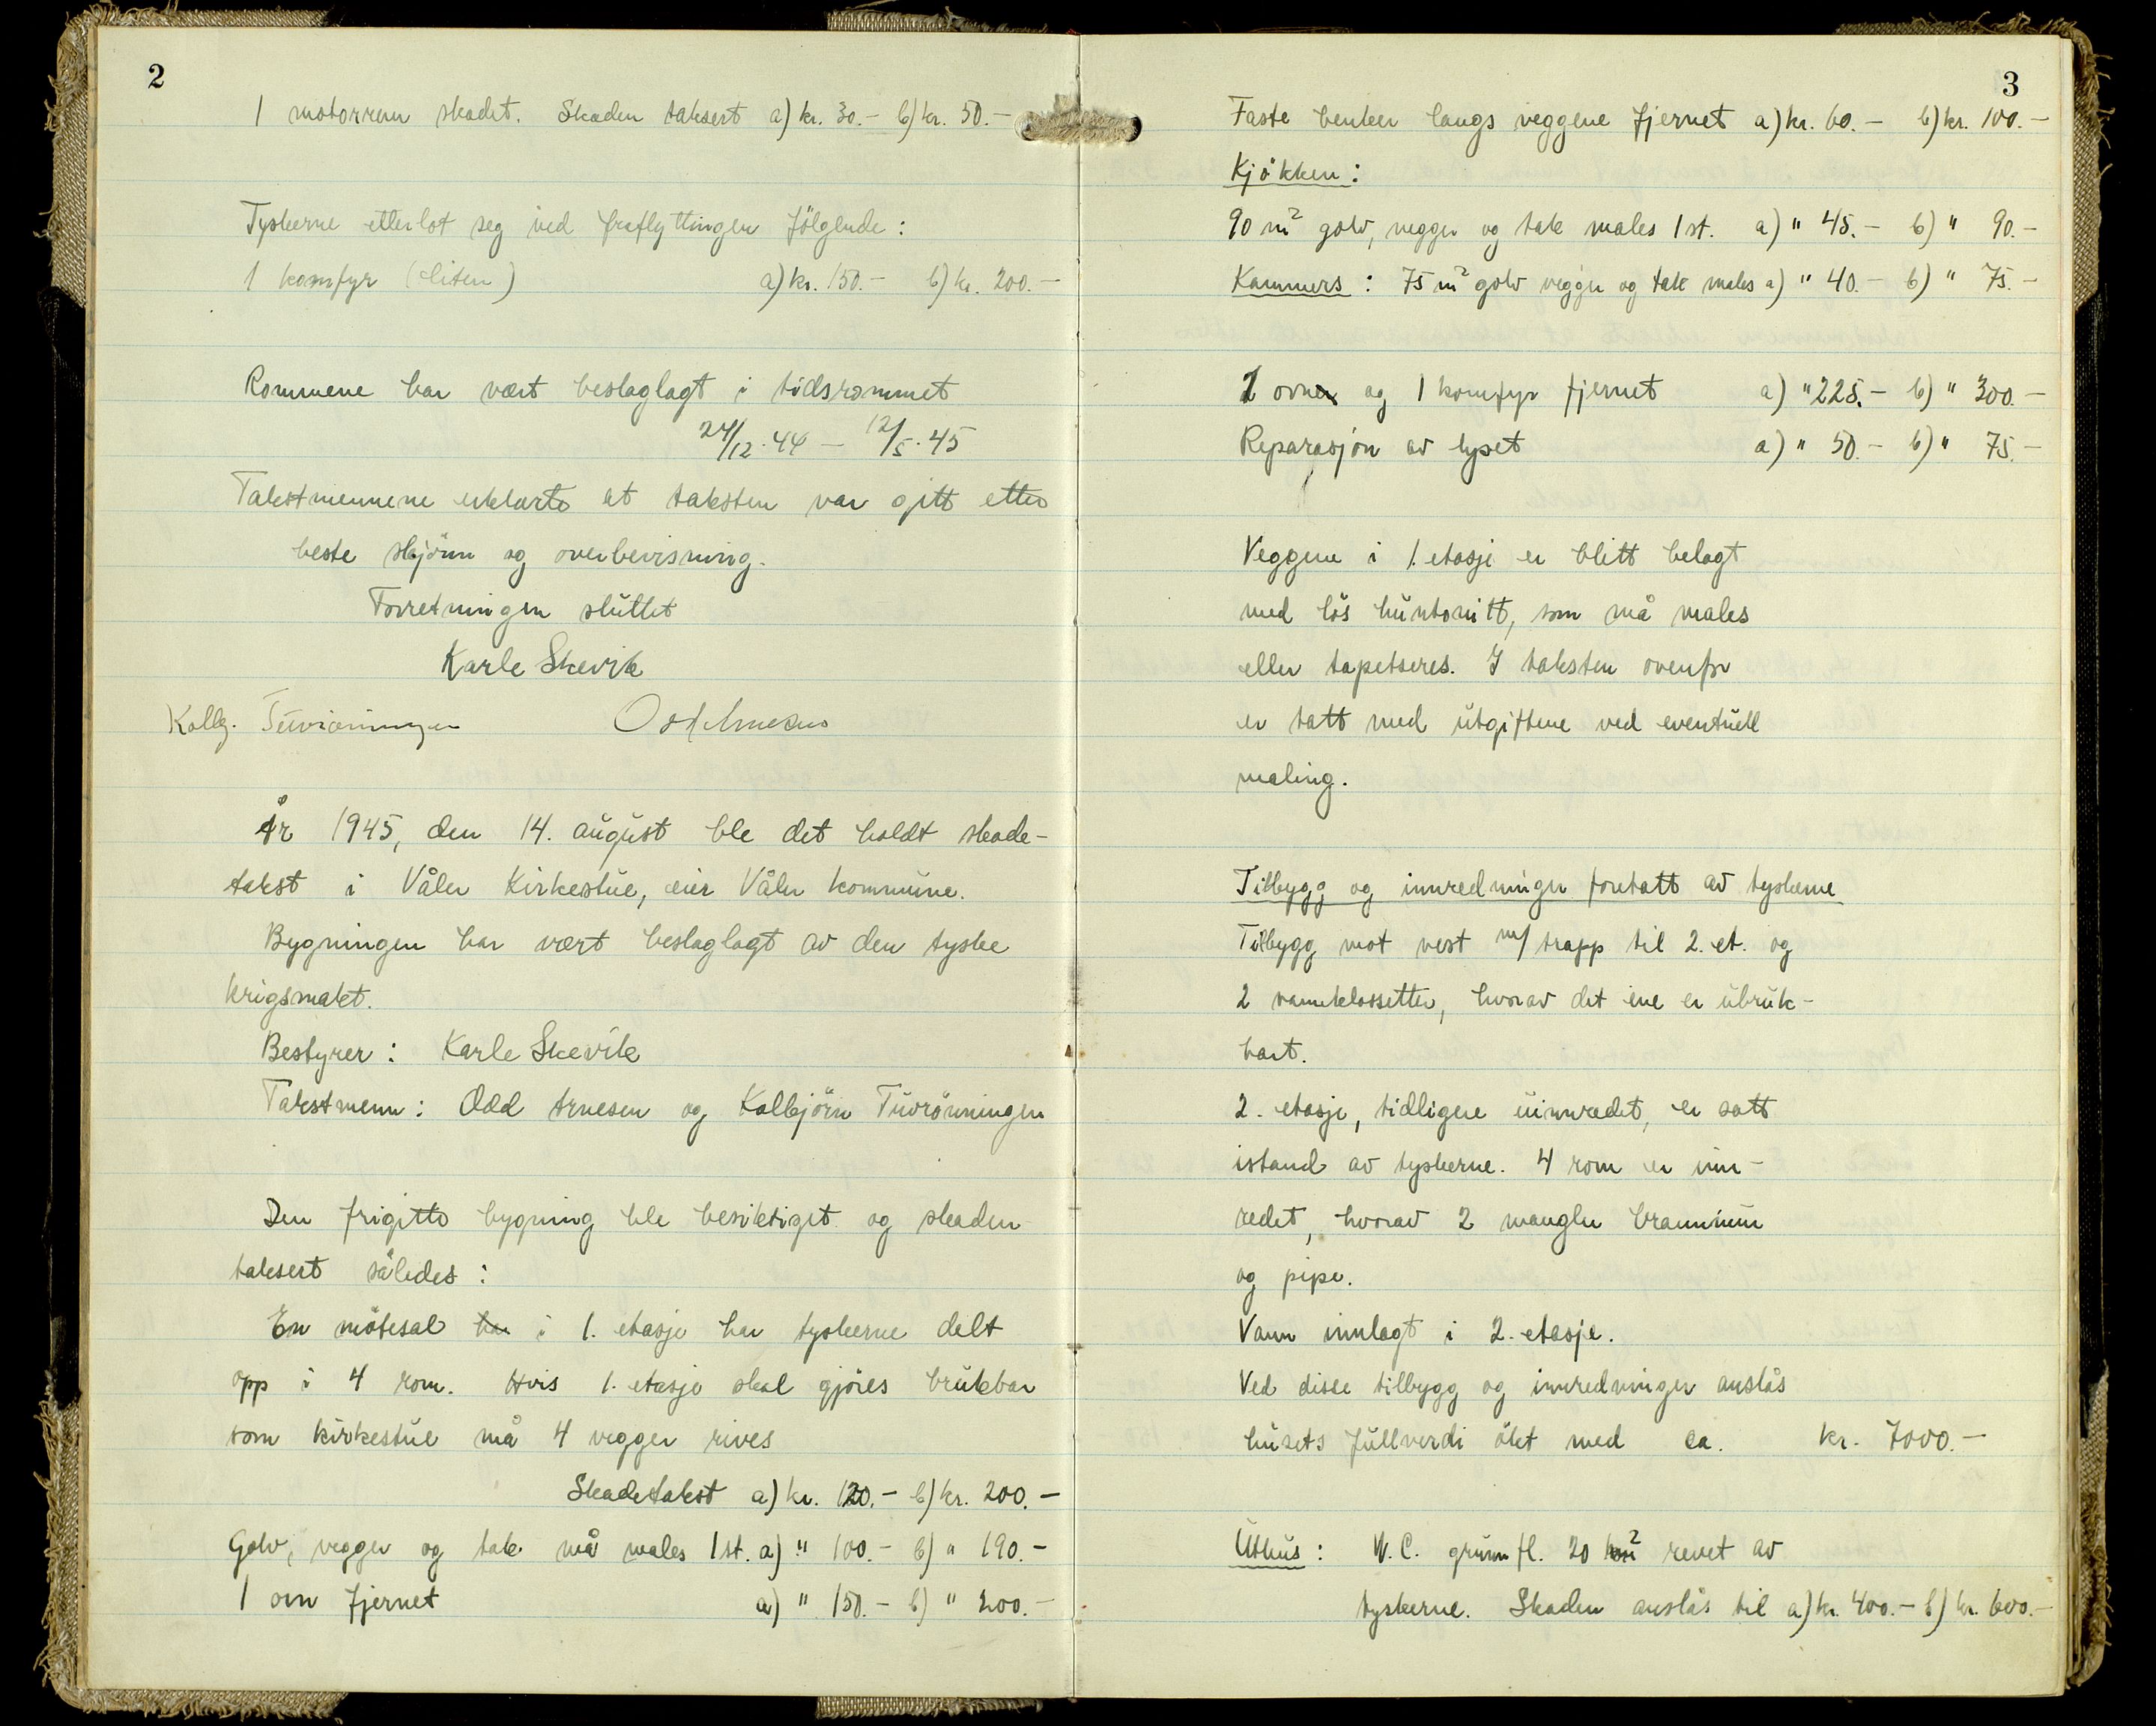 2
1 motorrem skadet. Skaden taksert a) kr. 30.- b) kr. 50.-
Tyskerne etterlot seg ved fraflyttingen följende:
1 komfyr (liten) a) kr. 150.- b) kr. 200.-
Rommene har vært beslaglagt i tidsrommet
24/12.44 - 12/5.45
Takstmennene erklærte at taksten var gitt etter
beste skjönn og overbevisning.
Forretningen sluttet
Karle Skevik
Kolbj. Tuvrönningen Odd Arnesen
År 1945, den 14. august ble det holdt skade-
takst i Våler Kirkestue, eier Våler kommune.
Bygningen har vært beslaglagt av den tyske
krigsmakt.
Bestyrer: Karle Skevik
Takstmenn: Odd Arnesen og Kolbjörn Tuvrönningen
Den frigitte bygning ble besiktiget og skaden
taksert således:
En mötesal har i 1. etasje har tyskerne delt
opp i 4 rom. Hvis 1. etasje skal gjöres brukbar
som kirkestue må 4 vegger rives
Skadetakst a) kr. 120.- b) kr. 200.-
Golv, vegger og tak må males 1 st. a) " 100.- b) " 190.-
1 ovn fjernet a) " 150.- b) " 200.-
3
Faste benker langs veggene fjernet a) kr. 60.- b) kr. 100.-
Kjökken:
90 m² golv, vegger og tak males 1 st. a) " 45.- b) " 90.-
Kammers: 75 m² golv vegger og tak males a) " 40.- b) " 75.-
1 ovn og 1 komfyr fjernet a) " 225.- b) " 300.-
Reparasjon av lyset a) " 50.- b) " 75.-
Veggene i 1. etasje er blitt belagt
med lös huntonitt, som må males
eller tapetseres. I taksten ovenfor
er tatt med utgiftene ved eventuell
maling.
Tilbygg og innredninger foretatt av tyskerne
Tilbygg mot vest m/trapp til 2. et. og
2 vannklossetter, hvorav det ene er ubruk-
bart.
2. etasje, tidligere uinnredet, er satt
istand av tyskerne. 4 rom er inn-
redet, hvorav 2 mangler brannmur
og pipe.
Vann innlagt i 2. etasje.
Ved disse tilbygg og innredninger anslås
husets fullverdi öket med ca. kr. 7000.-
Uthus: W.C. grunnfl. 20 m² revet av
tyskerne. Skaden anslås til a) kr. 400.- b) kr. 600.-